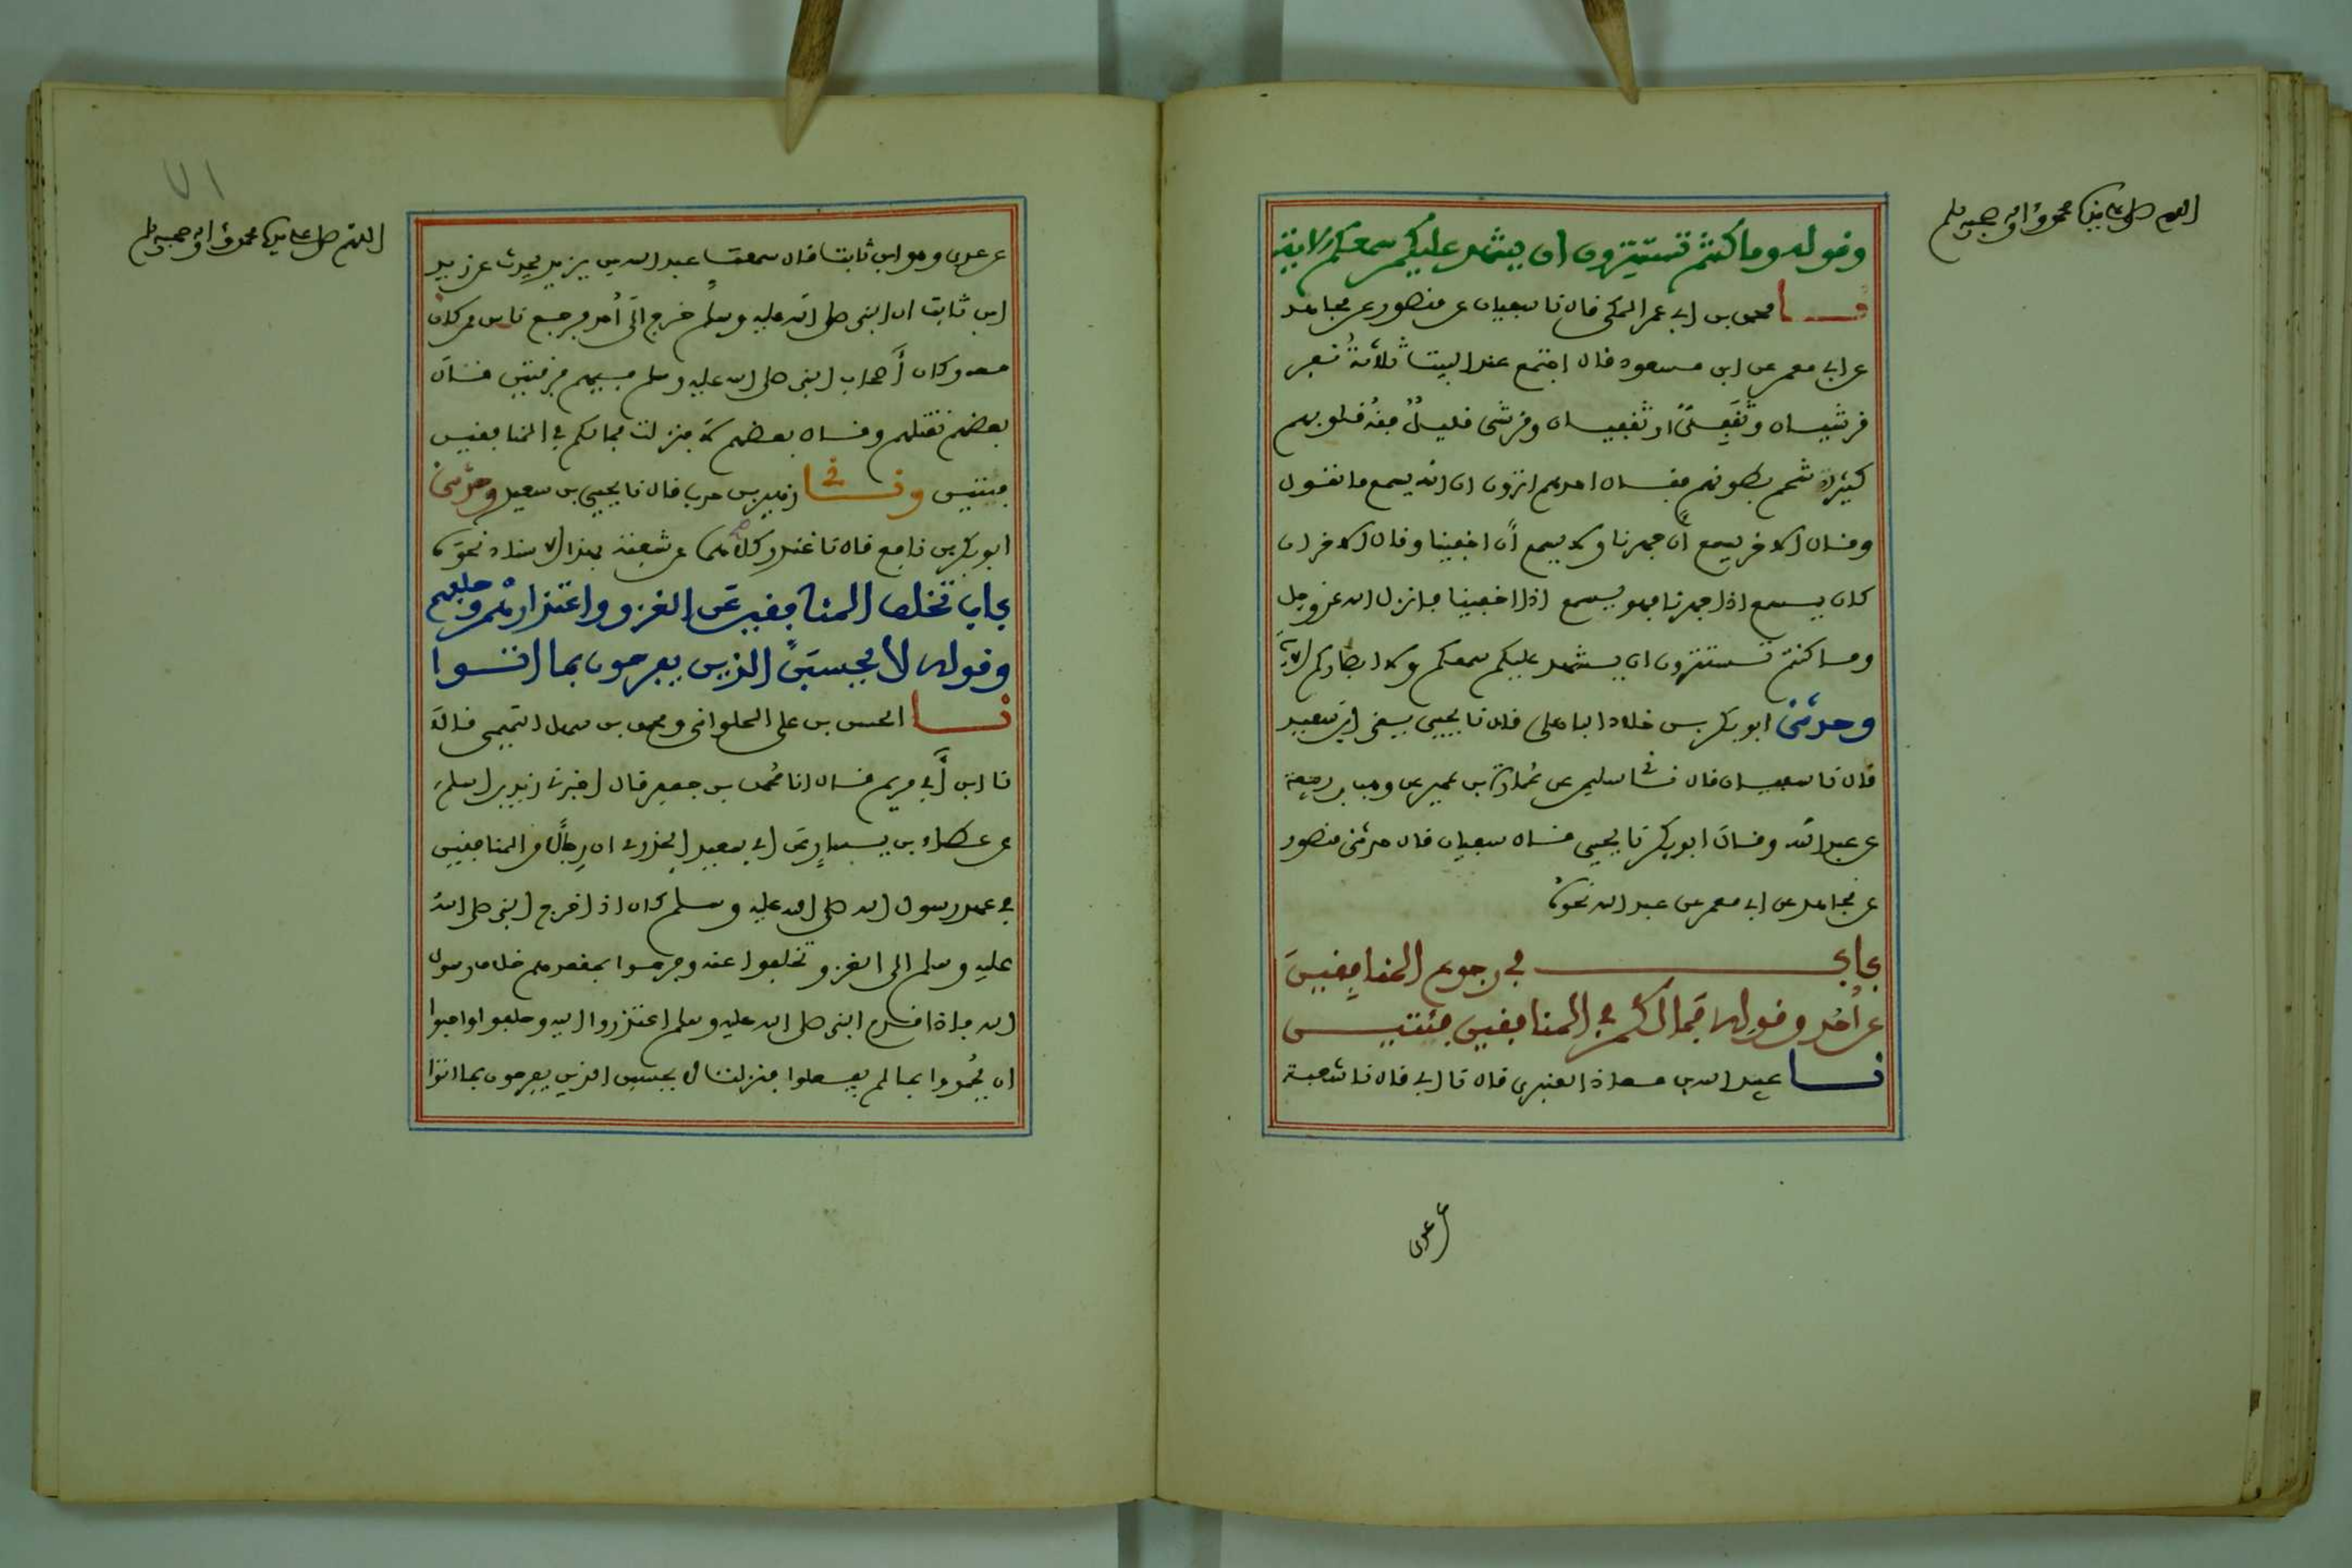 اللهم صل على نبينا محمد وآله وصحبه وسلم
وقوله وما كنتم تستترون ان يشهد عليكم سمعكم الاية
نا محمد بن ابي عمر المكي قال نا سفيان عن منصور عن مجاهد
عن ابي معمر عن ابن مسعود قال اجتمع عند البيت ثلاثة نفر
قرشيان وثقفي او ثقفيان وقرشي قليل فقه قلوبهم
كثيرة شحم بطونهم فقال احدهم اترون ان الله يسمع ما نقول
وقال الاخر يسمع ان جهرنا ولا يسمع ان اخفينا وقال الاخر ان
كان يسمع اذا جهرنا فهو يسمع اذا اخفينا فانزل الله عز وجل
وما كنتم تستترون ان يشهد عليكم سمعكم ولا ابصاركم الاية
وحدثني ابو بكر بن خلاد الباهلي قال نا يحيى يعني ابن سعيد
قال نا سفيان قال ثني سليمن عن عمارة بن عمير عن وهب بن ربيعة
عن عبد الله وقال ابو بكر نا يحيى قال سفيان قال حدثني منصور
عن مجاهد عن ابي معمر عن عبد الله نحوه
باب في رجوع المنافقين
عن احد وقوله فما لكم في المنافقين فئتين
نا عبيد الله بن معاذ العنبري قال نا ابي قال نا شعبة
عن عدي
٧١
اللهم صل على نبينا محمد وآله وصحبه وسلم
عن عدي وهو ابن ثابت قال سمعت عبد الله بن يزيد يحدث عن زيد
ابن ثابت ان النبي صلى الله عليه وسلم خرج الى احد فرجع ناس ممن كان
معه وكان اصحاب النبي صلى الله عليه وسلم فيهم فرقتين قال
بعضهم نقتلهم وقال بعضهم لا فنزلت فما لكم في المنافقين
فئتين وثنى زهير بن حرب قال نا يحيى بن سعيد وحدثني
ابو بكر بن نافع قال نا غندر كلاهما عن شعبة بهذا الاسناد نحوه
باب تخلف المنافقين عن الغزو واعتذارهم وحلفهم
وقوله لا يحسبن الذين يفرحون بما اتوا
نا الحسن بن علي الحلواني ومحمد بن سهل التميمي قالا
نا ابن ابي مريم قال انا محمد بن جعفر قال اخبرني زيد بن اسلم
عن عطاء بن يسار عن ابي سعيد الخدري ان رجالا من المنافقين
في عهد رسول الله صلى الله عليه وسلم كان اذا خرج النبي صلى الله
عليه وسلم الى الغزو تخلفوا عنه وفرحوا بمقعدهم خلاف رسول
الله فاذا قدم النبي صلى الله عليه وسلم اعتذروا اليه وحلفوا واحبوا
ان يحمدوا بما لم يفعلوا فنزلت لا يحسبن الذين يفرحون بما اتوا